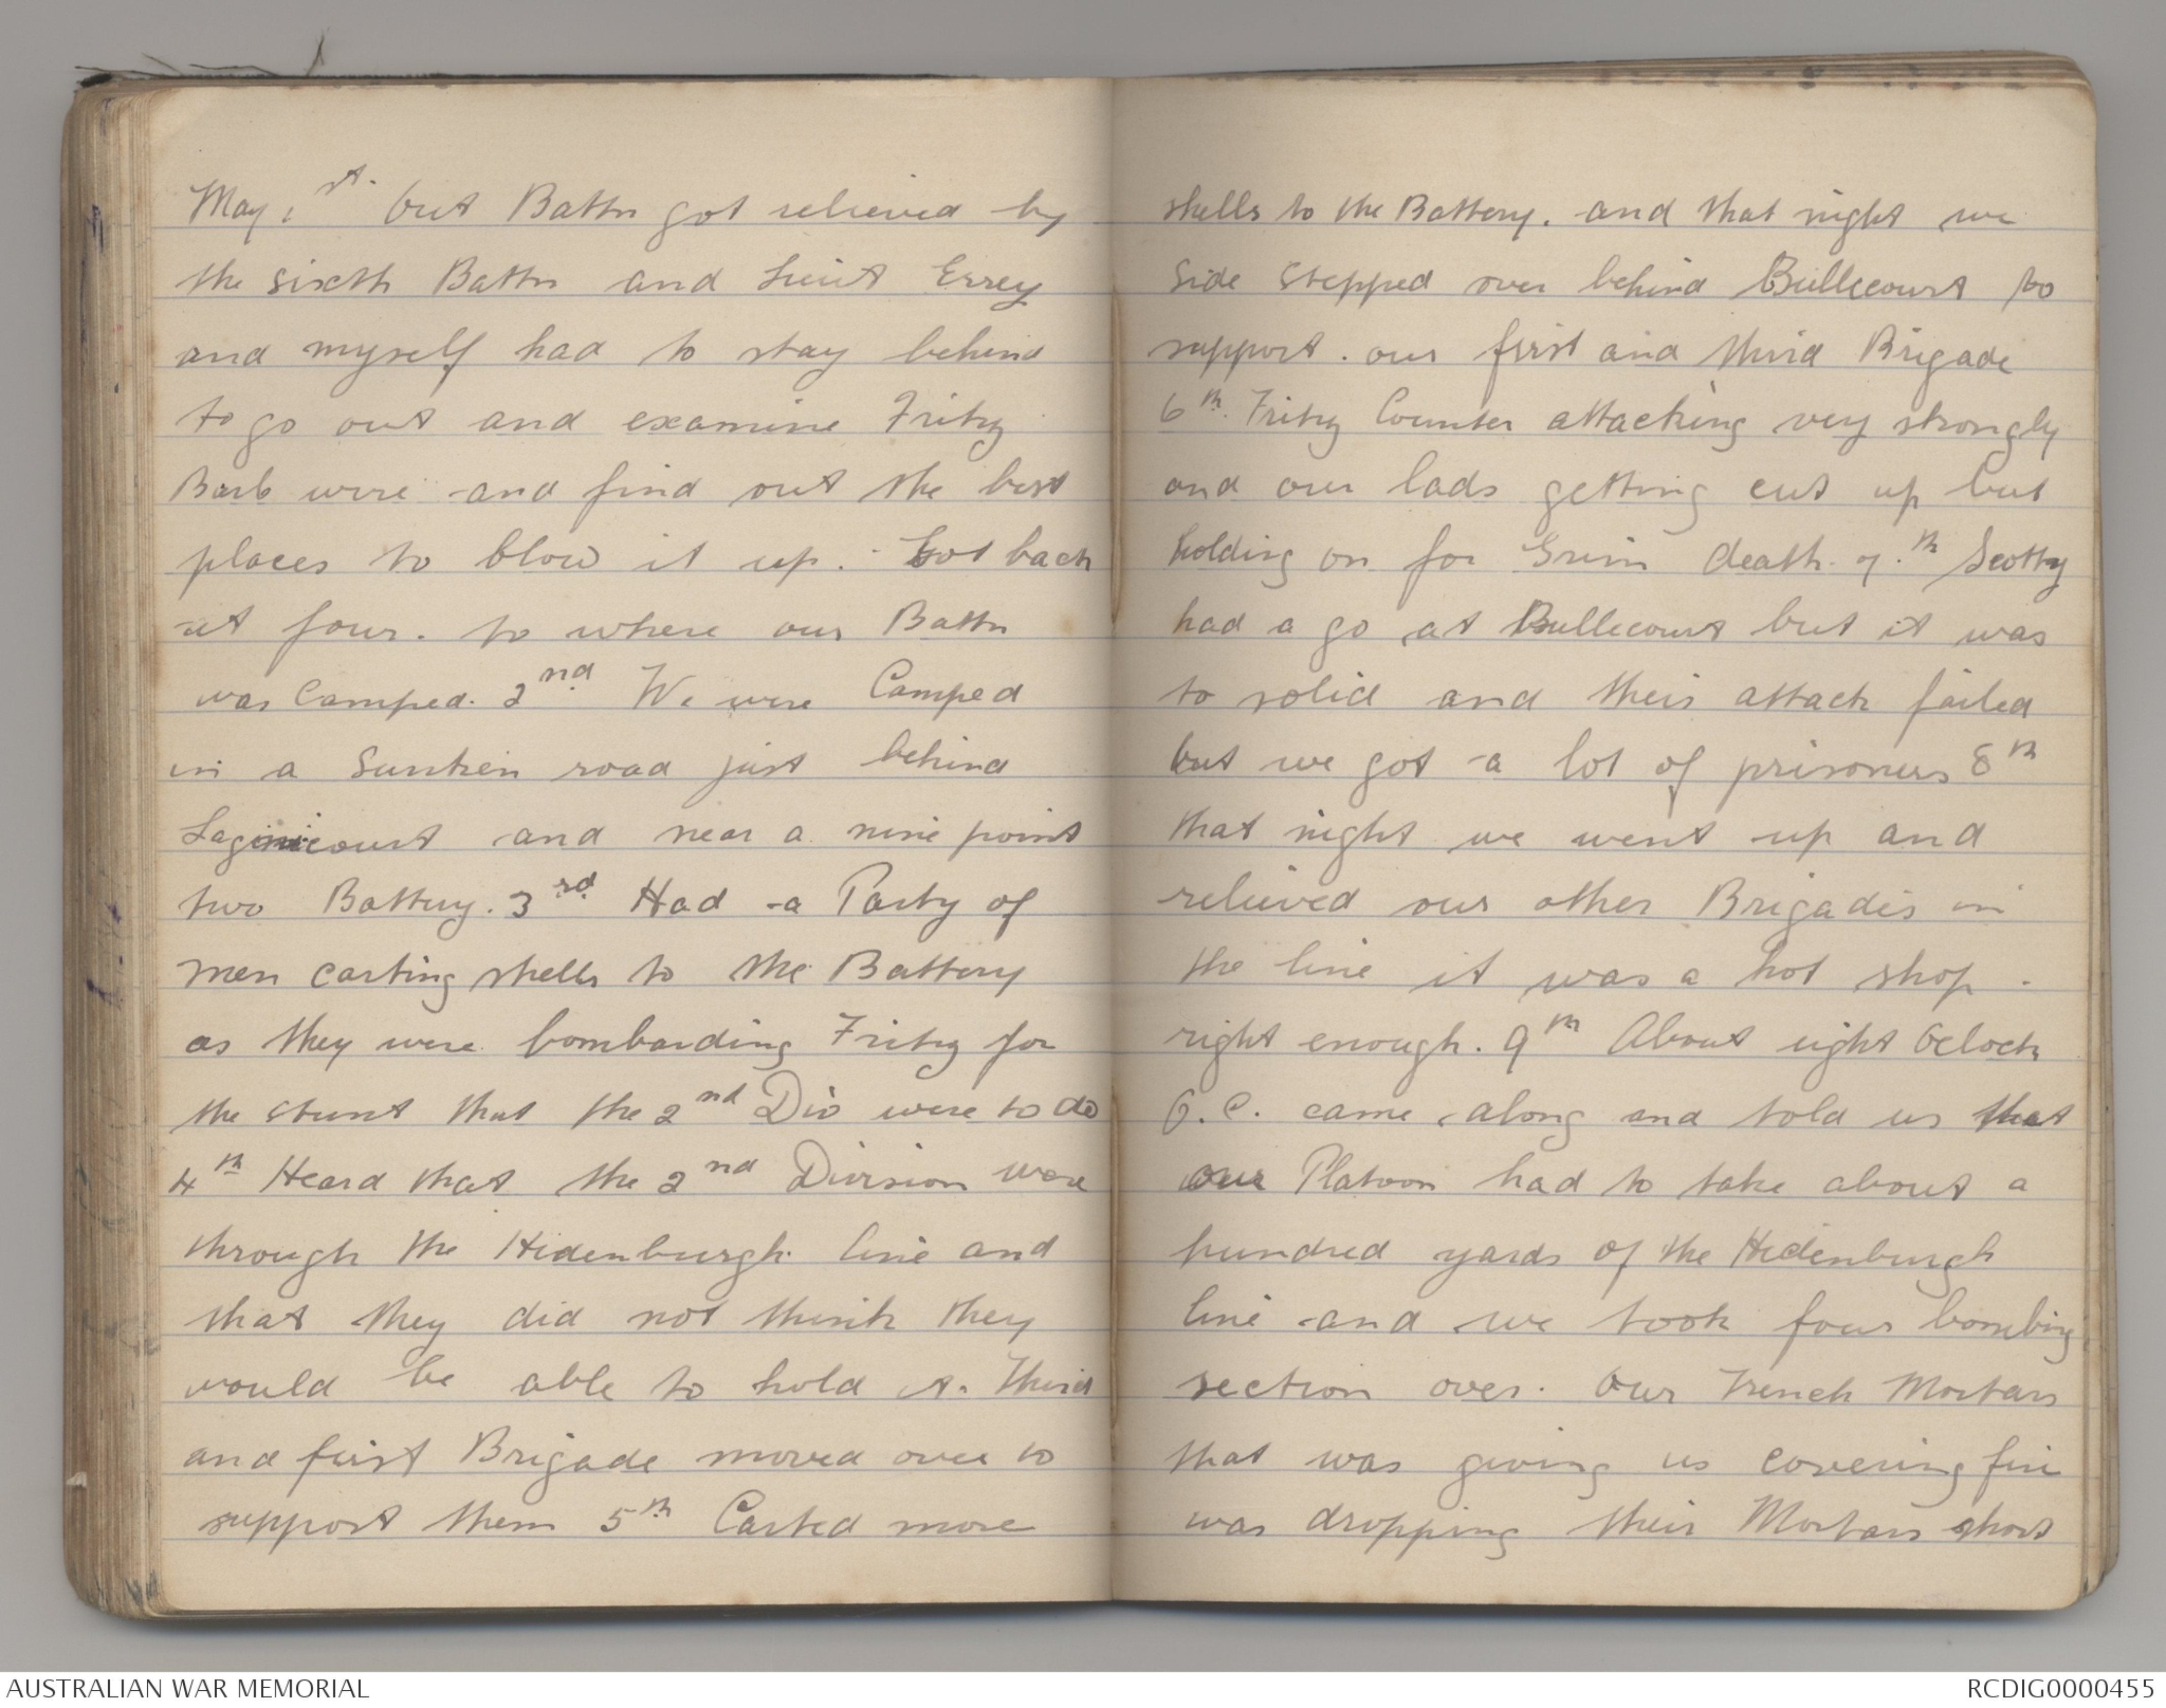 May 1st. but Battn got relieved by
the sixth Battn and Lieut Errey
and myself had to stay behind
to go out and examine Fritzy
Barb wire and find out the best
places to blow it up. Got back
at four. to where our Battn
was Camped. 2nd We were Camped
in a Sunken road just behind
Lagnicourt and near a nine point
two Battery. 3rd Had a Party of
men carting shells to the Battery
as they were bombarding Fritzy for
the stunt that the 2nd Div were to do
4th Heard that the 2nd Division were
through the Hidenburgh line and
that they did not think they
would be able to hold it. Third
and first Brigade moved over to
support them 5th Carted more
shells to the Battery. and that night we
Side Stepped over behind Bullecourt to
support. our first and third Brigade
6th. Fritzy Counter attacking very strongly
and our lads getting cut up but
holding on for Grim death. 7.th Scotty
had a go at Bullecourt but it was
to solid and their attack failed
but we got a lot of prisoners 8th
that night we went up and
relieved our other Brigades in
the line it was a hot shop.
right enough. 9th About eight Oclock
O.C. came along and told us that
our Platoon had to take about a
hundred yards of the Hidenburgh
line and we took four bombing
section over. Our Trench Mortars
that was giving us covering fire
was dropping their Mortars short
AUSTRALIAN WAR MEMORIAL
RCDIG0000455